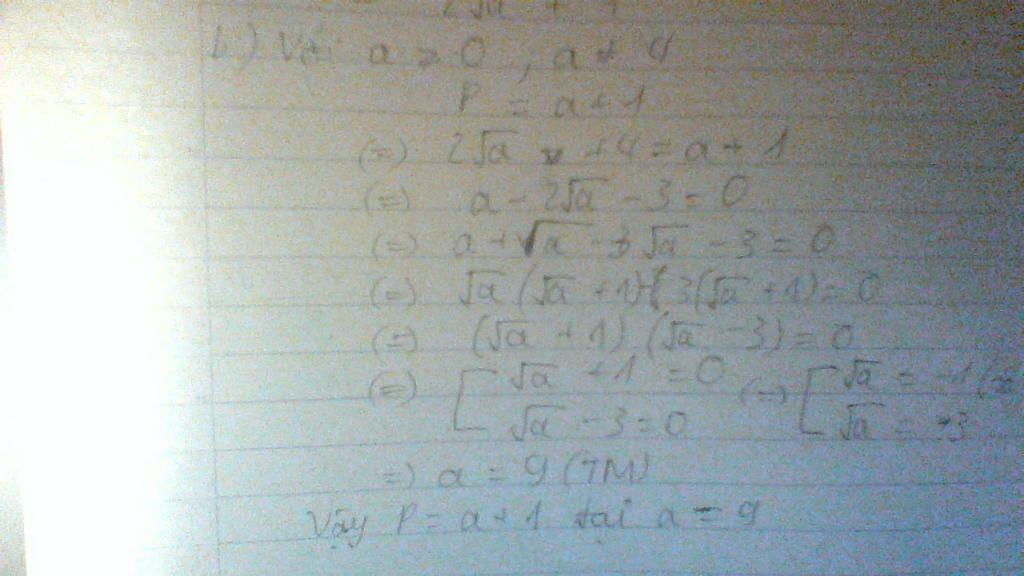 2√a + 4
b) Với a ≥ 0, a ≠ 4
P = a + 1
(=) 2√a + 4 = a + 1
(=) a - 2√a - 3 = 0
(=) a + √a - 3√a - 3 = 0
(=) √a (√a + 1) - 3(√a + 1) = 0
(=) (√a + 1) (√a - 3) = 0
(=) [ √a + 1 = 0 (=) [ √a = -1
√a - 3 = 0 √a = 3
=) a = 9 (TM)
Vậy P = a + 1 tại a = 9